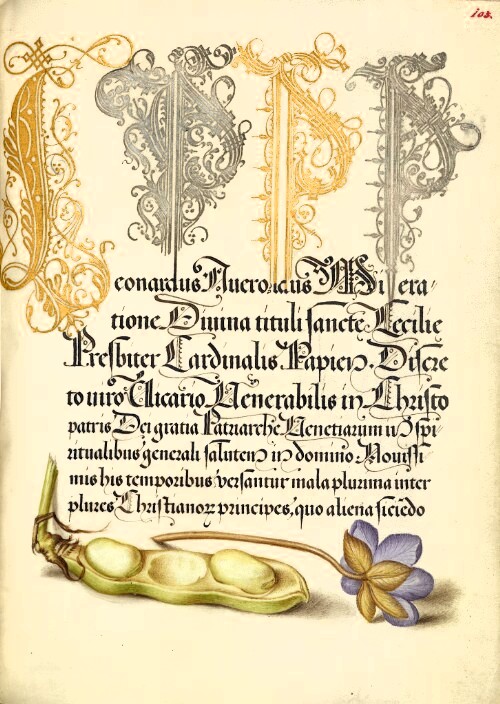 103.
L P P P
eonardus Miſera⸗
tione Diuina tituli ſancte Cecilie
Preſbiter Cardinalis Papien. Diſcre
to uiro Vicario Venerabilis in Christo
patris Dei gratia Patriarche Venetiarum in ſpi
ritualibus generali ſalutem in domino. Nouiſſi
mis his temporibus verſantur mala plurima inter
plures Chriſtianoꝝ principes, quo aliena